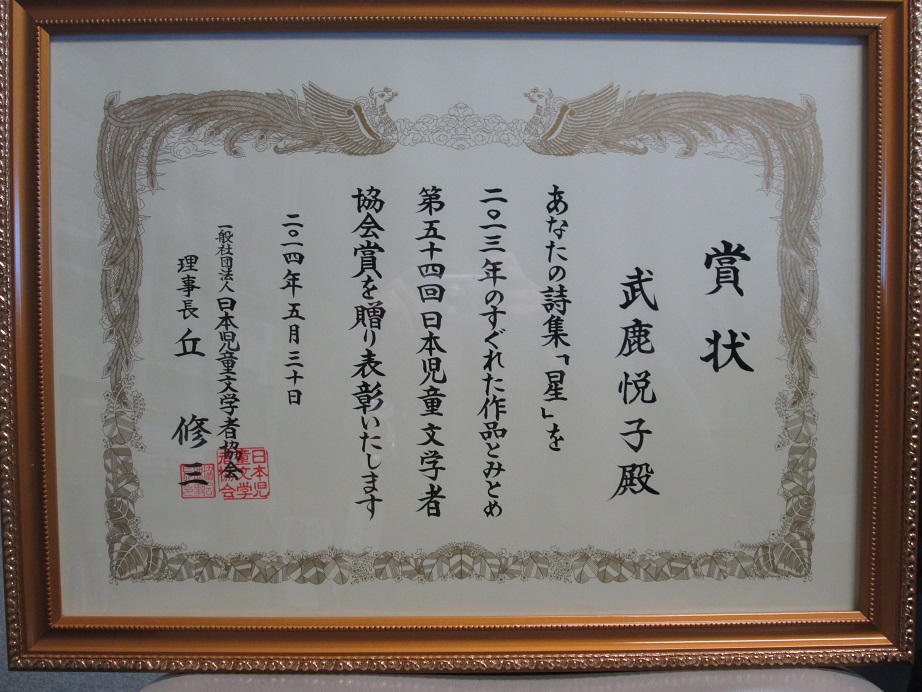 賞状
武鹿悦子殿
あなたの詩集「星」を
二〇一三年のすぐれた作品とみとめ
第五十四回日本児童文学者
協会賞を贈り表彰いたします
二〇一四年五月三十日
一般社団法人日本児童文学者協会
理事長 丘 修三
日本児
童文学
者協会